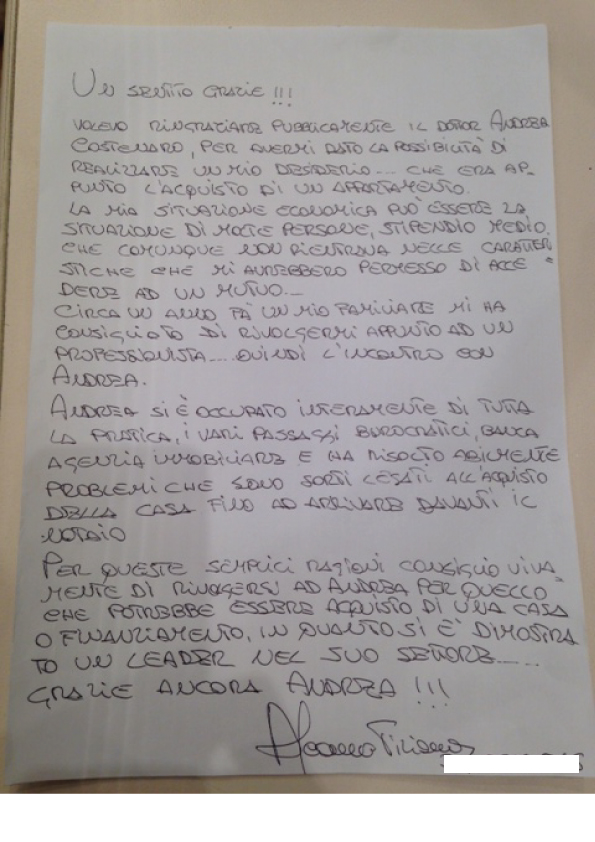 UN SENTITO GRAZIE !!!
VOLEVO RINGRAZIARE PUBBLICAMENTE IL DOTOR ANDREA
COSTENARO, PER AVERMI DATO LA POSSIBILITÀ DI
REALIZZARE UN MIO DESIDERIO.... CHE ERA AP-
PUNTO L'ACQUISTO DI UN APPARTAMENTO.
LA MIA SITUAZIONE ECONOMICA PUÒ ESSERE LA
SITUAZIONE DI MOLTE PERSONE, STIPENDIO MEDIO.
CHE COMUNQUE NON RIENTRAVA NELLE CARATTERI
STICHE CHE MI AVREBBERO PERMESSO DI ACCE -
DERE AD UN MUTUO...
CIRCA UN ANNO FÀ UN MIO FAMILIARE MI HA
CONSIGLIATO DI RIVOLGERMI APPUNTO AD UN
PROFESSIONISTA..... QUINDI L'INCONTRO CON
ANDREA.
ANDREA SI È OCCUPATO INTERAMENTE DI TUTTA
LA PRATICA, I VARI PASSAGGI BUROCRATICI, BANCA
AGENZIA IMMOBILIARE E HA RISOLTO ABILMENTE
PROBLEMI CHE SONO SORTI LEGATI ALL'ACQUISTO
DELLA CASA FINO AD ARRIVARE DAVANTI IL
NOTAIO
PER QUESTE SEMPLICI RAGIONI CONSIGLIO VIVA-
MENTE DI RIVOGERSI AD ANDREA PER QUELLO
CHE POTREBBE ESSERE ACQUISTO DI UNA CASA
O FINANZIAMENTO, IN QUANTO SI È DIMOSTRA
TO UN LEADER NEL SUO SETTORE.....
GRAZIE ANCORA ANDREA !!!